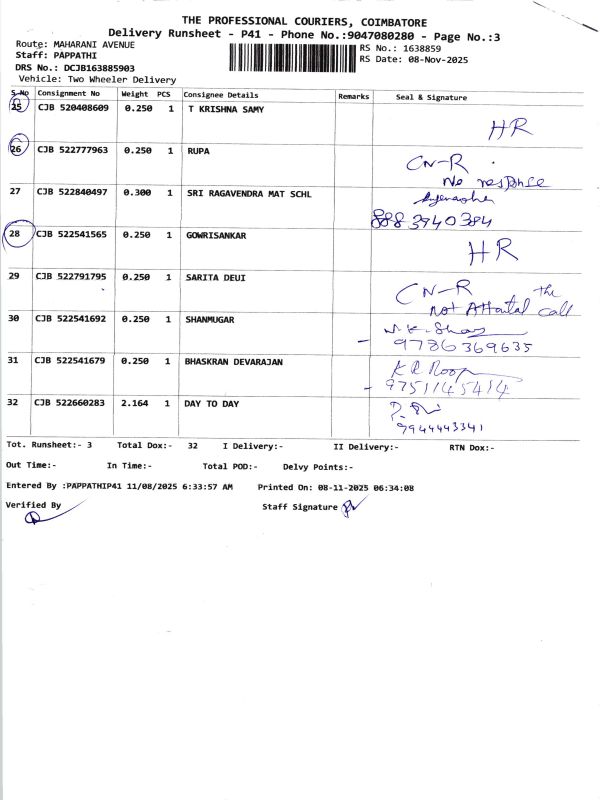 THE PROFESSIONAL COURIERS, COIMBATORE
Delivery Runsheet - P41 - Phone No.:9047080280 - Page No.:3
Route: MAHARANI AVENUE
RS No.: 1638859
Staff: PAPPATHI
RS Date: 08-Nov-2025
DRS No.: DCJB163885903
Vehicle: Two Wheeler Delivery
S.No Consignment No Weight PCS Consignee Details Remarks Seal & Signature
25 CJB 520408609 0.250 1 T KRISHNA SAMY
HR
26 CJB 522777963 0.250 1 RUPA
CN-R
No response
27 CJB 522840497 0.300 1 SRI RAGAVENDRA MAT SCHL
888 3940384
28 CJB 522541565 0.250 1 GOWRISANKAR
HR
29 CJB 522791795 0.250 1 SARITA DEUI
CN-R the
not call
30 CJB 522541692 0.250 1 SHANMUGAR
9786369635
31 CJB 522541679 0.250 1 BHASKRAN DEVARAJAN
9751145414
32 CJB 522660283 2.164 1 DAY TO DAY
9944443341
Tot. Runsheet:- 3 Total Dox:- 32 I Delivery:- II Delivery:- RTN Dox:-
Out Time:- In Time:- Total POD:- Delvy Points:-
Entered By :PAPPATHIP41 11/08/2025 6:33:57 AM Printed On: 08-11-2025 06:34:08
Verified By Staff Signature